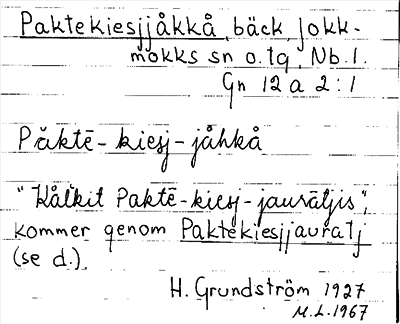 Paktekiesjjåkkå, bäck, Jokk-
mokks sn o. tg, Nb. l.
Gn 12 a 2:1
Păktē-kiesj-jåhkå
"Kålkit Paktē-kiesj-jaurātjis",
kommer genom Paktekiesjjauratj
(se d.).
H. Grundström 1927
M.L. 1967